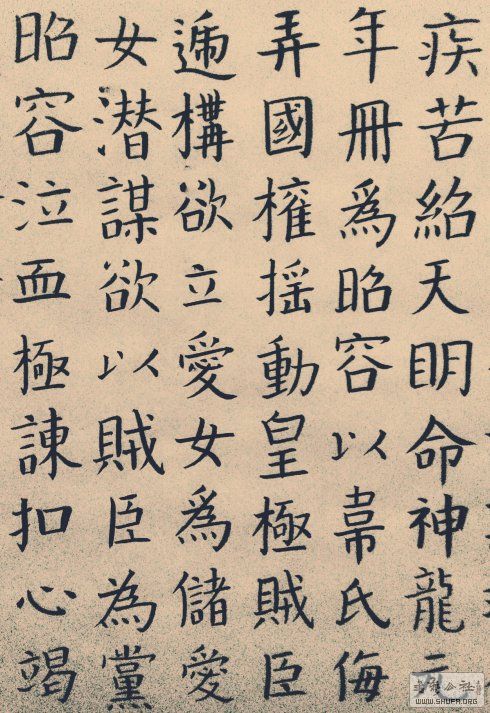 疾苦紹天明命神龍
年冊爲昭容以韋氏侮
弄國權摇動皇極賊臣
遞構欲立愛女爲儲愛
女潜謀欲以賊臣為黨
昭容泣血極諫扣心竭
WWW.SHUFA.ORG